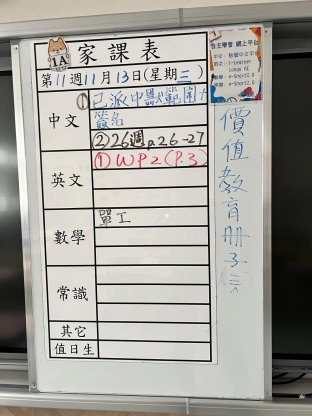 1A
家課表
第11週11月13日(星期三)
中文
①已派中默範圍+
簽名
②26週p.26-27
英文
①WP2(P.3)
數學
單工
常識
其它
值日生
自主學習 網上平台
價值教育冊子